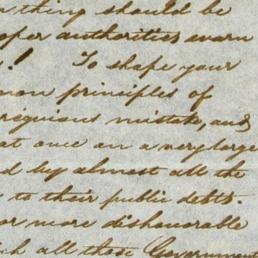 thing should be
proper authorities warn
! To shape your
mon principles of
egregious mistake, and
at once on a very large
d by almost all the
to their public debts.
or more dishonorable
ch all those Government